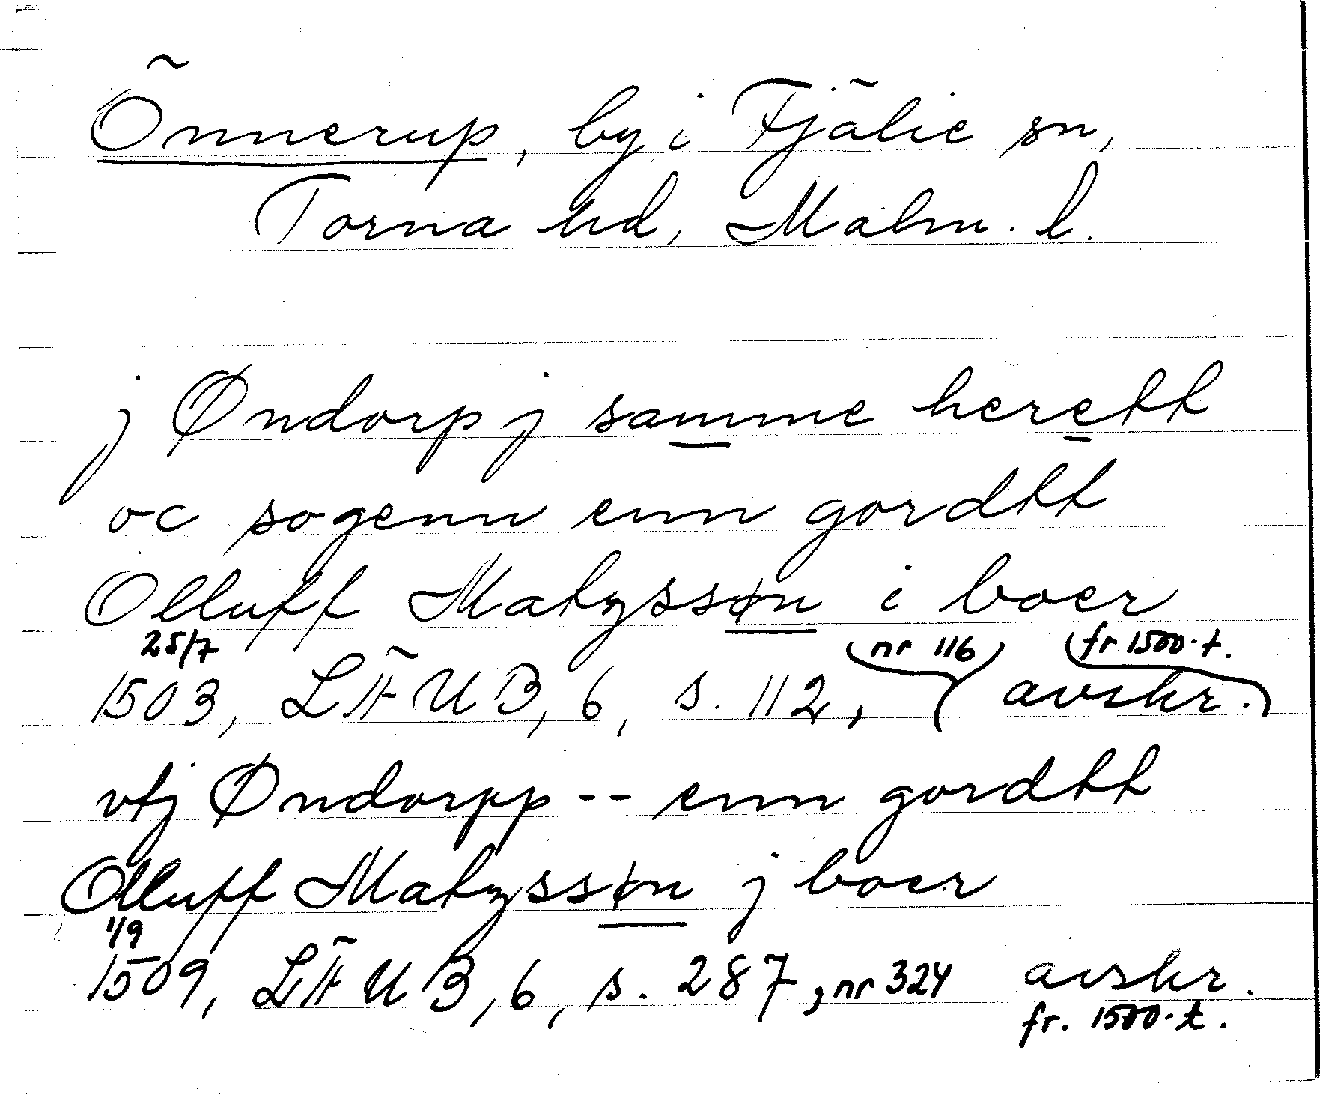 Önnerup, by i Fjälie sn,
Torna hd, Malm. l.
j Øndorp j samme herett
oc sogenn enn gordtt
Olluff Matzssøn i boer
25/7 (nr 116) (fr. 1500-t.
1503, LÄUB, 6, s. 112, ( avskr.)
vtj Øndorpp -- enn gordtt
Olluff Matzssøn j boer
1/9
1509, LÄUB, 6, s. 287, nr 324 avskr.
fr. 1500-t.